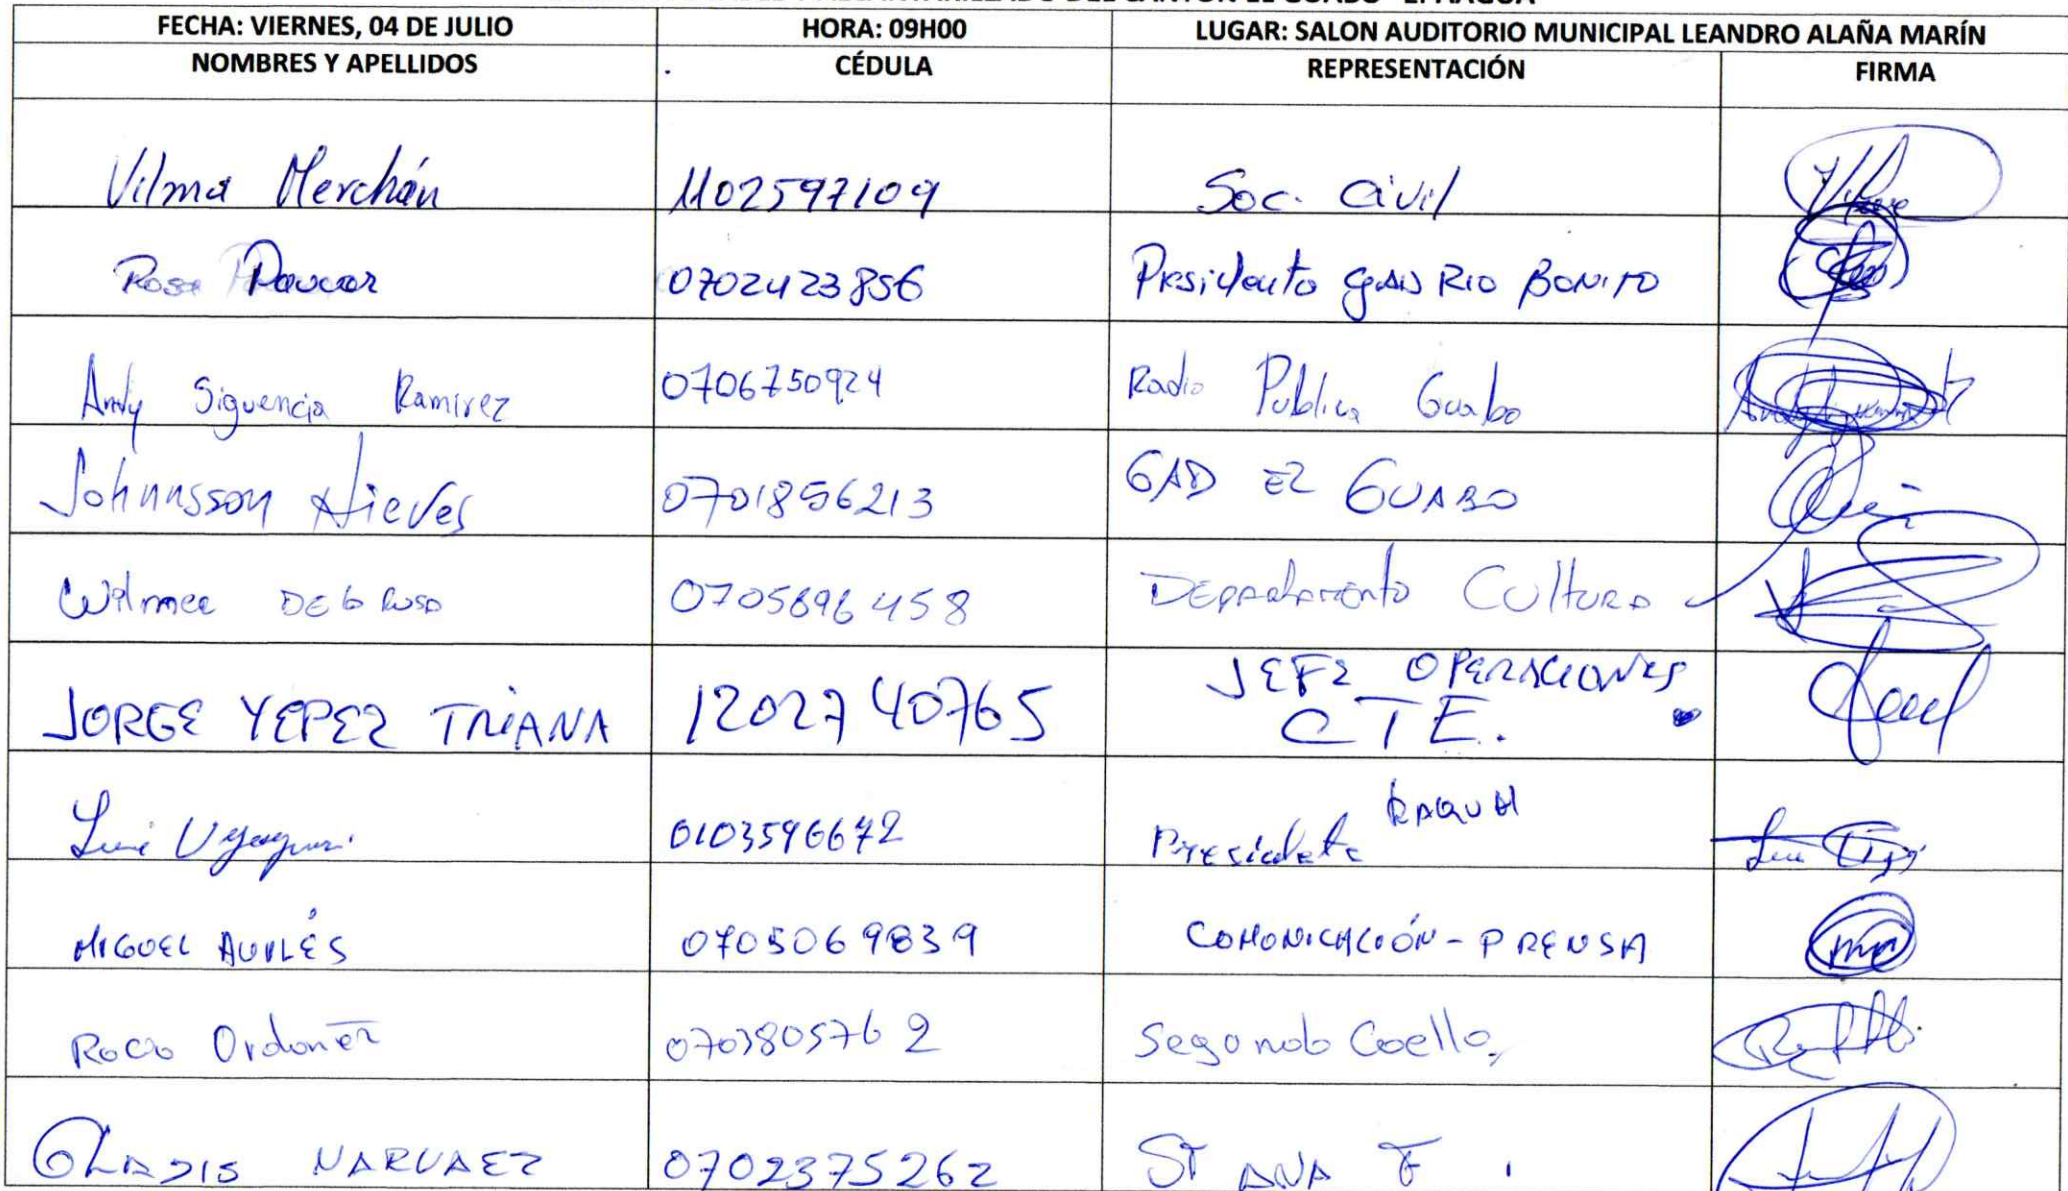 FECHA: VIERNES, 04 DE JULIO HORA: 09H00 LUGAR: SALON AUDITORIO MUNICIPAL LEANDRO ALAÑA MARÍN
NOMBRES Y APELLIDOS CÉDULA REPRESENTACIÓN FIRMA
Vilma Merchán 1102597109 Soc. Civil
Rosa Paucar 0702423856 Presidenta GAD RIO BONITO
Andy Siguencia Ramirez 0706750924 Radio Publica Guabo
Johnnsson Nieves 0701856213 GAD El GUABO
Wilmer 0705696458 Departamento Cultura
JORGE YEPEZ TRIANA 1202740765 JEFE OPERACIONES
CTE.
Luis 0103596672 Presidente
MIGUEL AVILÉS 0705069839 COMONICACIÓN - PRENSA
Rocio Ordoñez 0703805762 Segundo Coello,
GLADIS NARVAEZ 0702375262 ST ANA